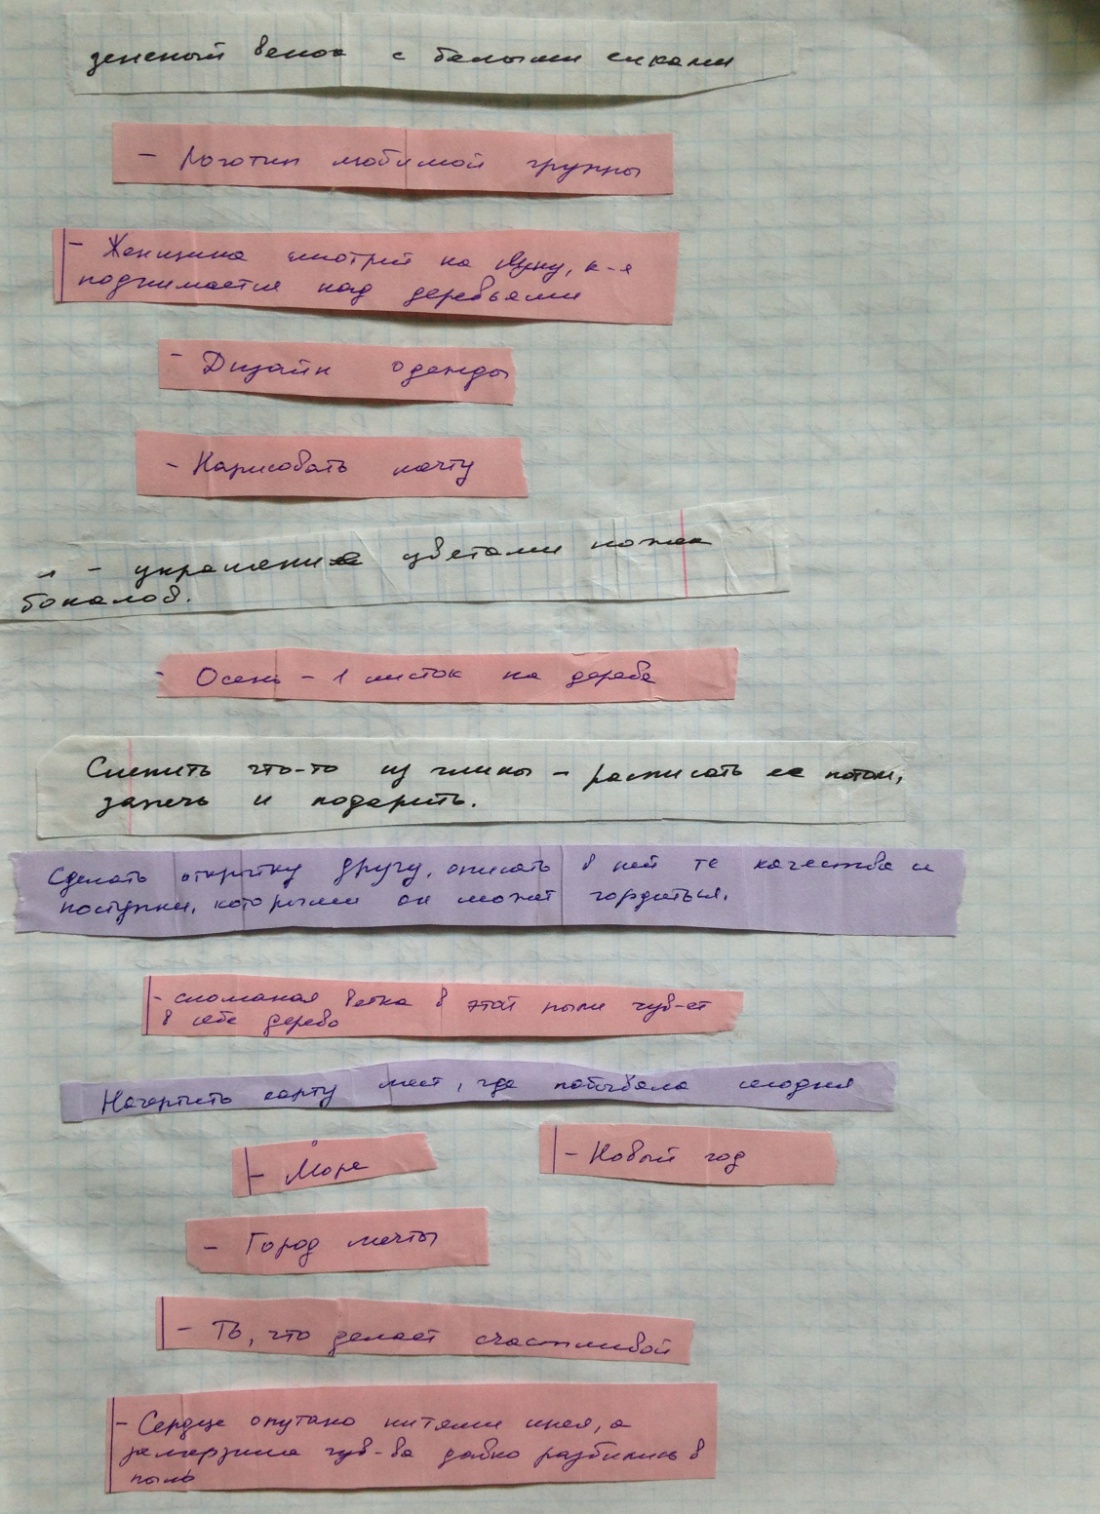 зеленый венок с белыми
- Логотип любимой группы
- Женщина смотрит на Луну, к-я
поднимается над деревьями
- Дизайн одежды
- Нарисовать мечту
- украшение цветами ножек
бокалов.
- Осень - 1 листок на дереве
Слепить что-то из глины - расписать ее потом,
запечь и подарить.
Сделать открытку другу, описать в ней те качества и
поступки, которыми он может гордиться.
- сломаная ветка в этой пыли чув-ет
в себе дерево
Начертить карту мест, где побывала сегодня
- Море
- Новый год
- Город мечты
- То, что делает счастливой
- Сердце опутано нитями инея, а
замерзшие чув-ва давно разбились в
пыль